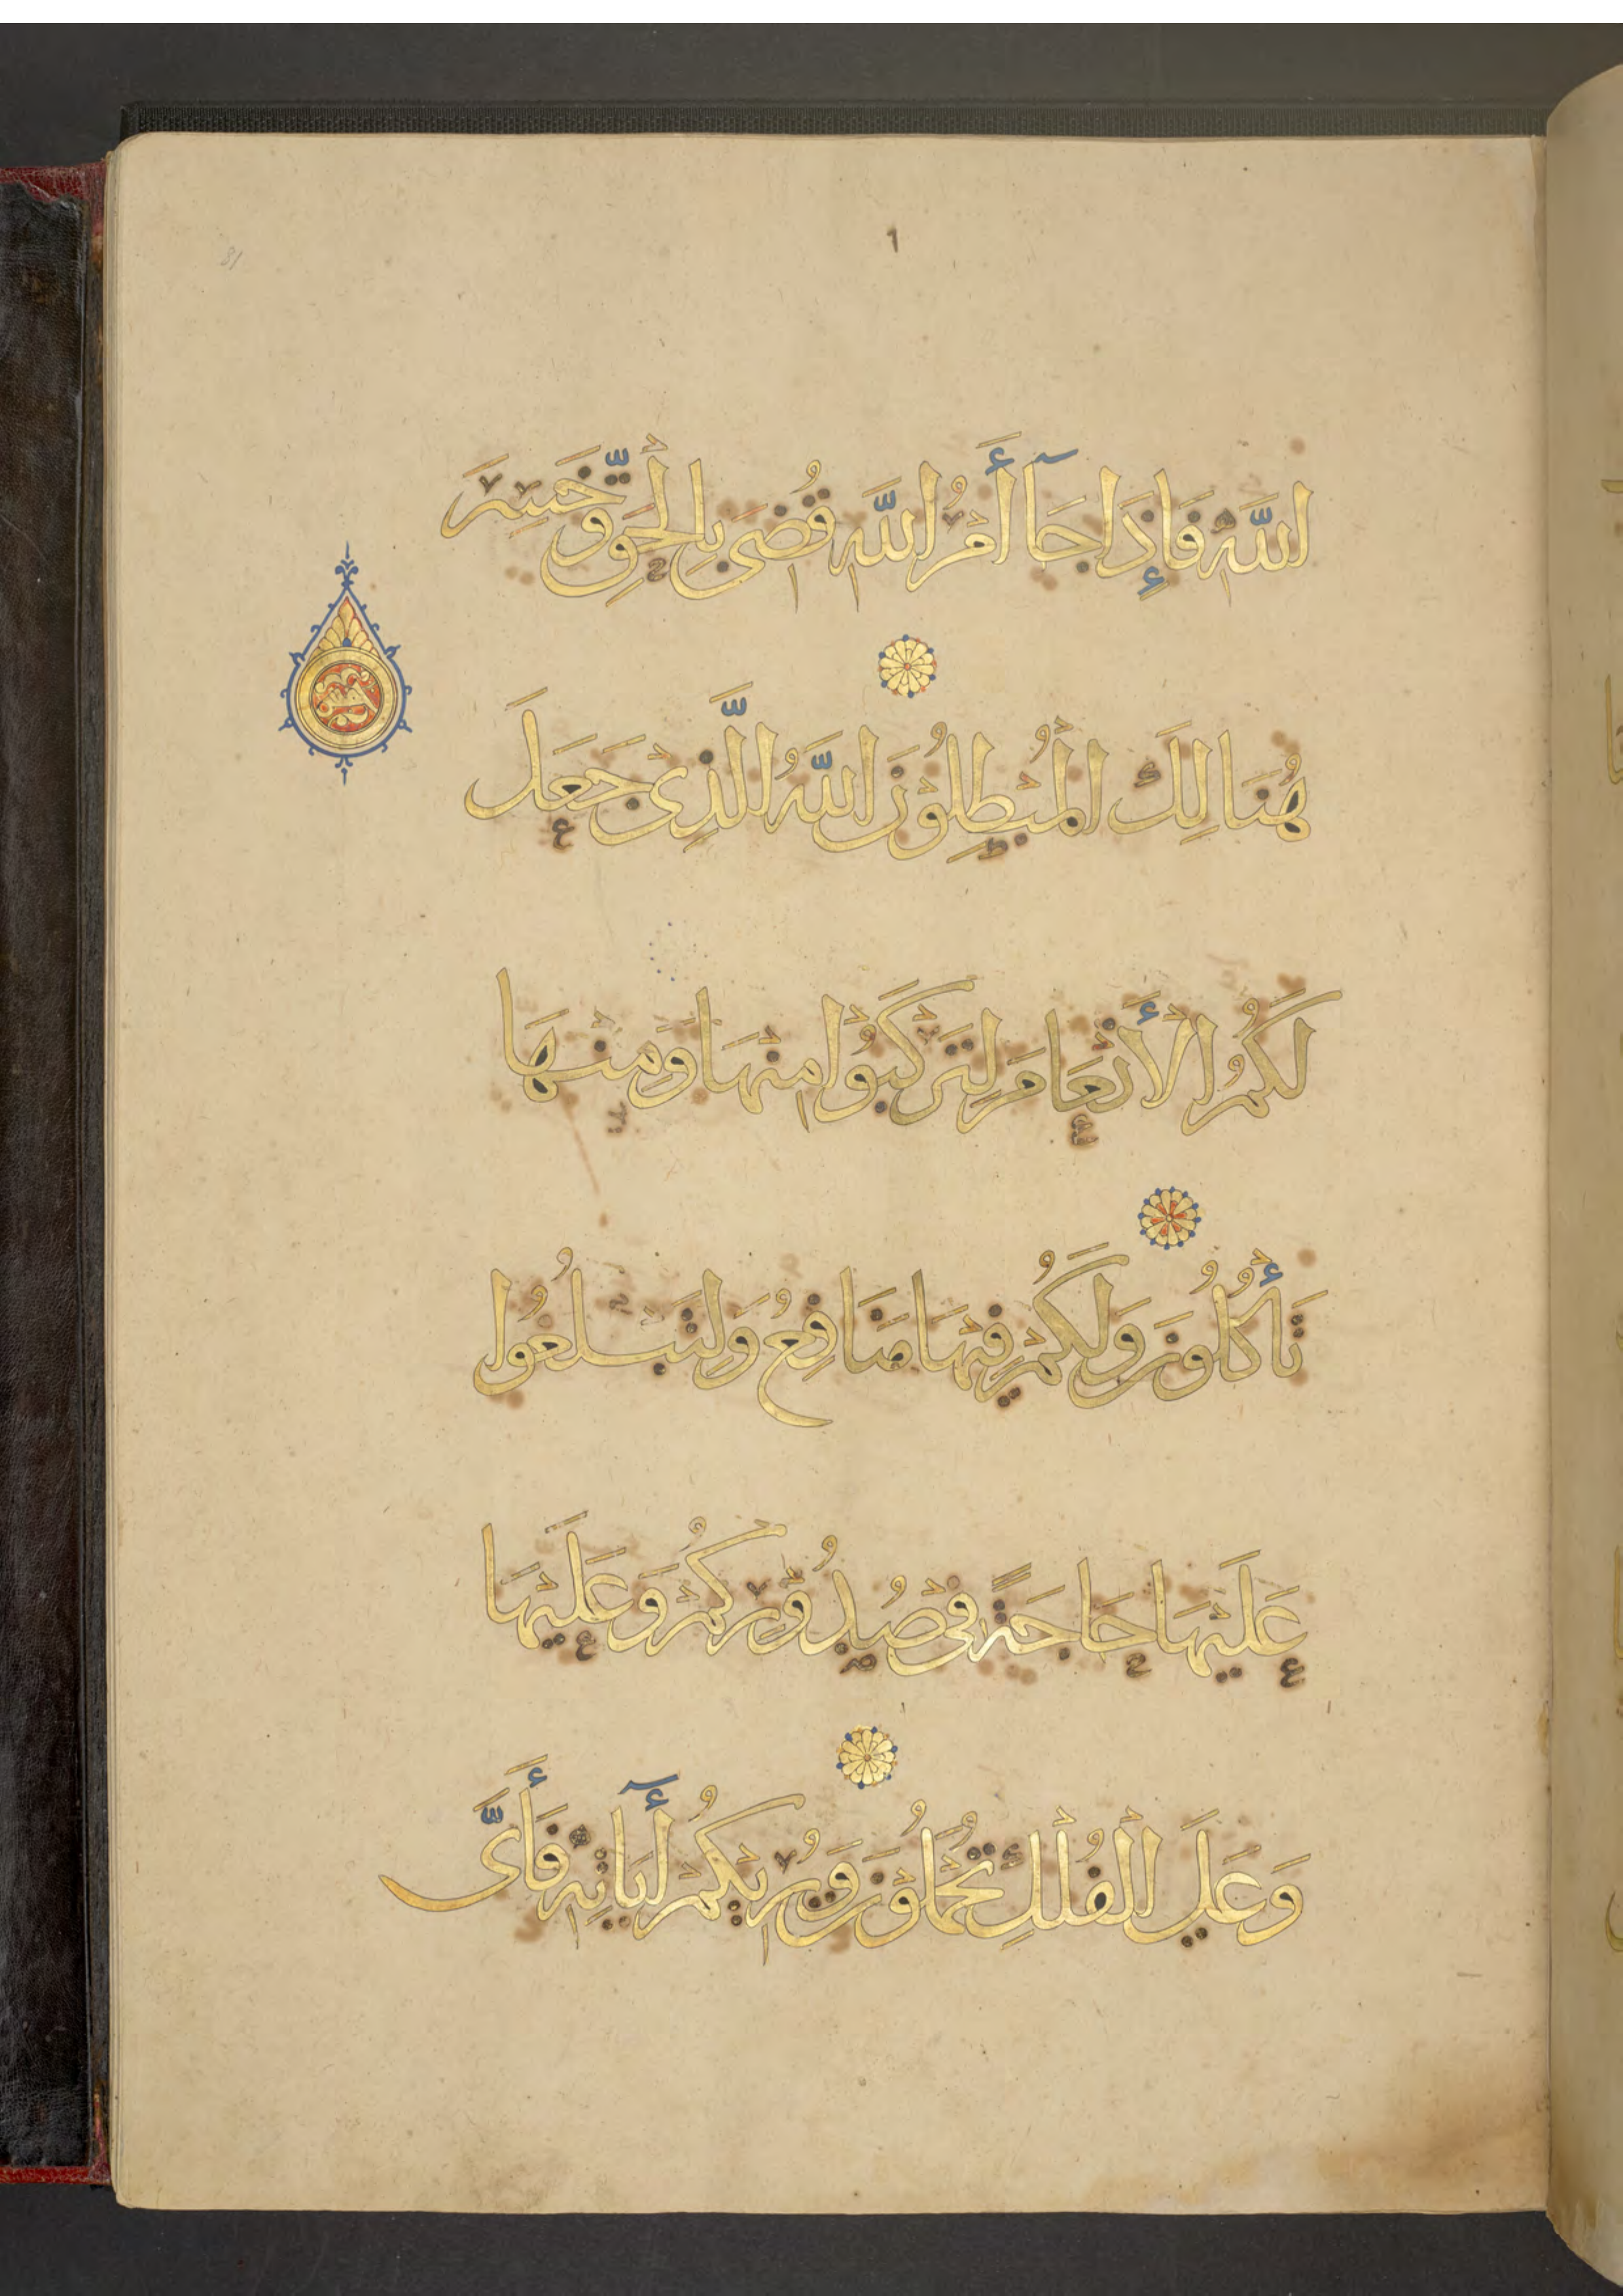 ١
81
اللَّهِ فَإِذَا جَآ أَمْرُ اللَّهِ قُضِيَ بِالْحَقِّ وَخَسِرَ
هُنَالِكَ الْمُبْطِلُوْنَ اللَّهُ الَّذِيْ جَعَلَ
لَكُمُ الْأَنْعَامَ لِتَرْكَبُوْا مِنْهَا وَمِنْهَا
تَأْكُلُوْنَ وَلَكُمْ فِيْهَا مَنَافِعُ وَلِتَبْلُغُوا
عَلَيْهَا حَاجَةً فِيْ صُدُوْرِكُمْ وَعَلَيْهَا
وَعَلَى الْفُلْكِ تُحْمَلُوْنَ وَيُرِيْكُمْ أٓيَاتِهِ فَأَيَّ